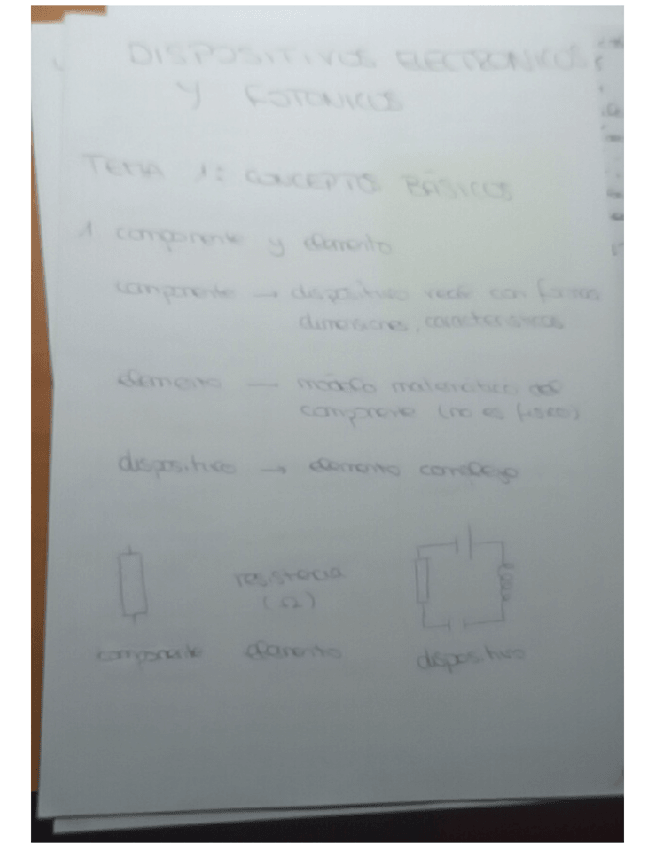 DISPOSITIVOS ELECTRONICOS
Y FOTONICOS
TEMA 1: CONCEPTOS BÁSICOS
1 componente y elemento
componente → dispositivo real con forma
dimensiones, características
elemento — modelo matemático del
componente (no es físico)
dispositivo → elemento complejo
resistencia
(Ω)
componente elemento dispositivo